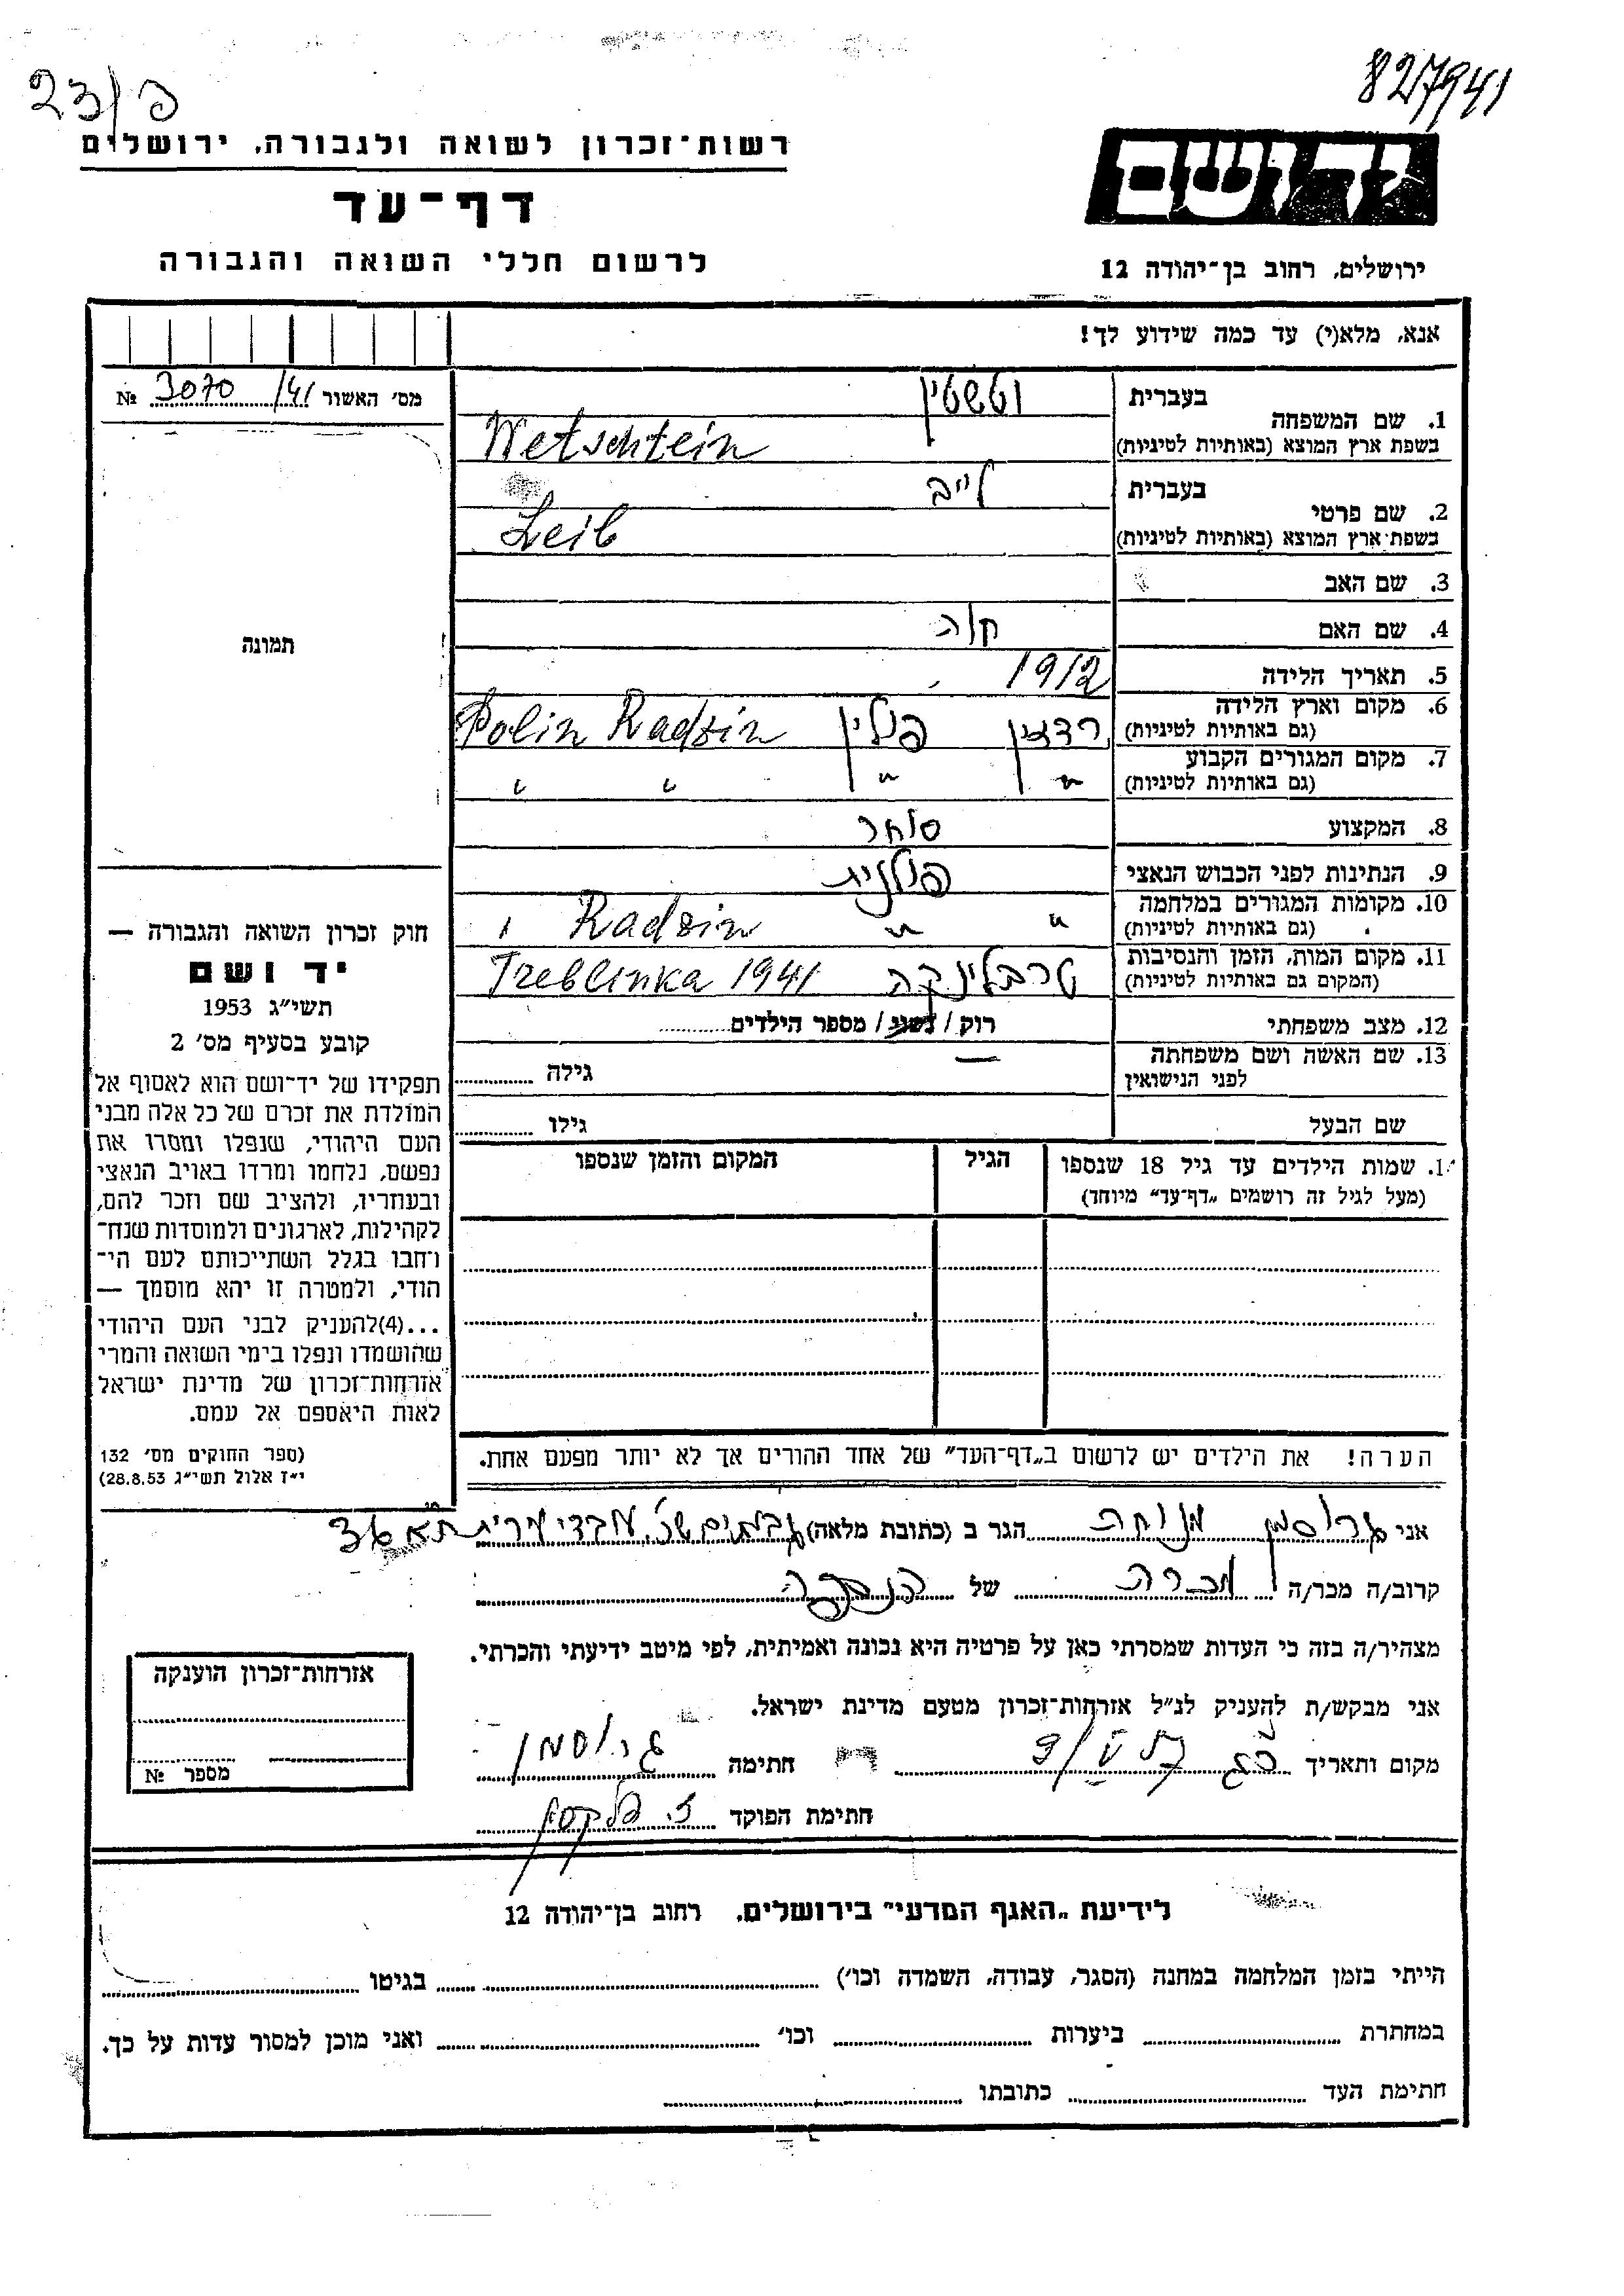 827941
23/פ
יד ושם
רשות־זכרון לשואה ולגבורה, ירושלים
דף־עד
לרשום חללי השואה והגבורה
ירושלים, רחוב בן־יהודה 12
אנא, מלא(י) עד כמה שידוע לך!
מס' האשור 41/ 3070 №
1. שם המשפחה
בעברית וטשטין
בשפת ארץ המוצא (באותיות לטיניות) Wetschtein
2. שם פרטי
בעברית לייב
בשפת ארץ המוצא (באותיות לטיניות) Leib
3. שם האב
4. שם האם חוה
5. תאריך הלידה 1912
6. מקום וארץ הלידה
(גם באותיות לטיניות) רדזין פולין Polin Radzin
7. מקום המגורים הקבוע
(גם באותיות לטיניות) " " " "
8. המקצוע סוחר
9. הנתינות לפני הכבוש הנאצי פולנית
10. מקומות המגורים במלחמה
(גם באותיות לטיניות) " " Radzin
11. מקום המות, הזמן והנסיבות
(המקום גם באותיות לטיניות) טרבלינקה Treblinka 1941
12. מצב משפחתי רוק / נשוי / מספר הילדים
13. שם האשה ושם משפחתה
לפני הנישואין — גילה
שם הבעל גילו
1. שמות הילדים עד גיל 18 שנספו
(מעל לגיל זה רושמים „דף־עד" מיוחד)
הגיל
המקום והזמן שנספו
תמונה
חוק זכרון השואה והגבורה —
יד ושם
תשי"ג 1953
קובע בסעיף מס' 2
תפקידו של יד־ושם הוא לאסוף אל
המולדת את זכרם של כל אלה מבני
העם היהודי, שנפלו ומסרו את
נפשם, נלחמו ומרדו באויב הנאצי
ובעוזריו, ולהציב שם וזכר להם,
לקהילות, לארגונים ולמוסדות שנח־
רחבו בגלל השתייכותם לעם הי־
הודי, ולמטרה זו יהא מוסמך —
...(4)להעניק לבני העם היהודי
שהושמדו ונפלו בימי השואה והמרי
אזרחות־זכרון של מדינת ישראל
לאות היאספם אל עמם.
(ספר החוקים מס' 132
י"ז אלול תשי"ג 28.8.53)
הערה! את הילדים יש לרשום ב„דף־העד" של אחד ההורים אך לא יותר מפעם אחת.
אני גרוסמן מנוחה הגר ב (כתובת מלאה) גבעתיים
קרוב/ה מכר/ה מכרה של הנספה
מצהיר/ה בזה כי העדות שמסרתי כאן על פרטיה היא נכונה ואמיתית, לפי מיטב ידיעתי והכרתי.
אני מבקש/ת להעניק לנ"ל אזרחות־זכרון מטעם מדינת ישראל.
מקום ותאריך חתימה גרוסמן
חתימת הפוקד
אזרחות־זכרון הוענקה
מספר №
לידיעת „האגף המדעי" בירושלים, רחוב בן־יהודה 12
הייתי בזמן המלחמה במחנה (הסגר, עבודה, השמדה וכו') בגיטו
במחתרת ביערות וכו' ואני מוכן למסור עדות על כך.
חתימת העד כתובתו